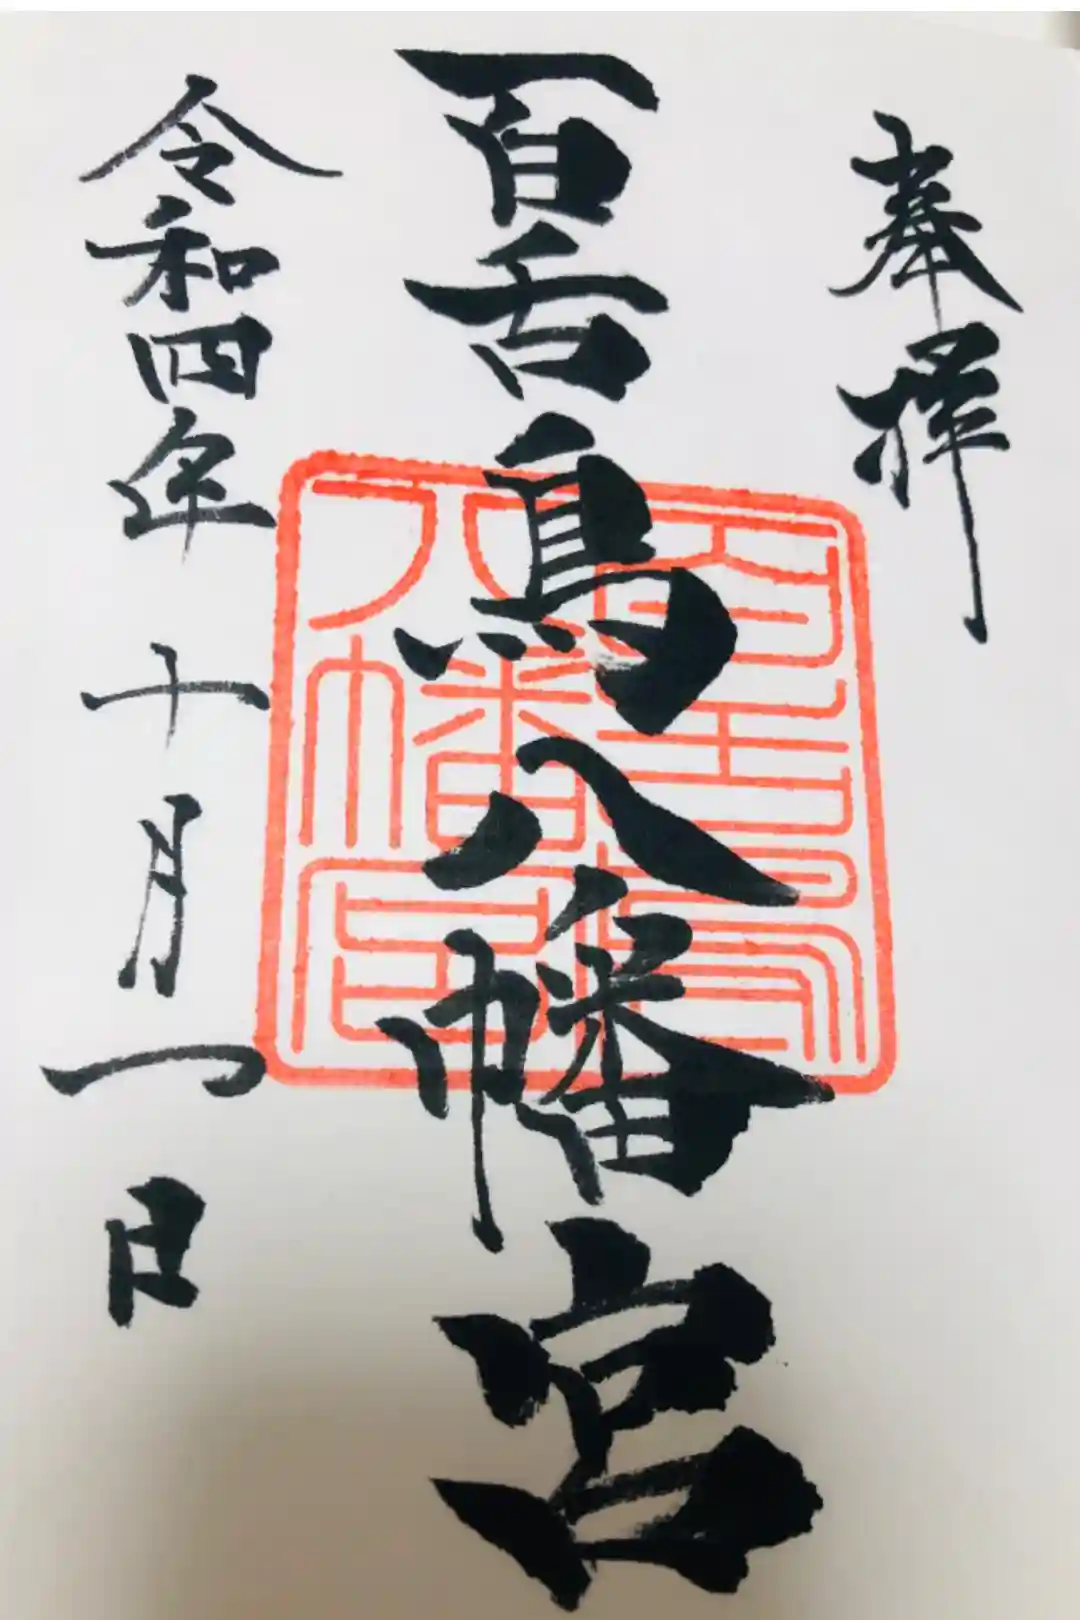 奉拝
百舌鳥八幡宮
令和四年十月一日
百舌鳥
八幡宮